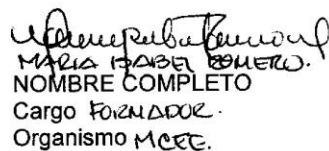 MARIA ISABEL ROMERO.
NOMBRE COMPLETO
Cargo FORMADOR.
Organismo MCEE.